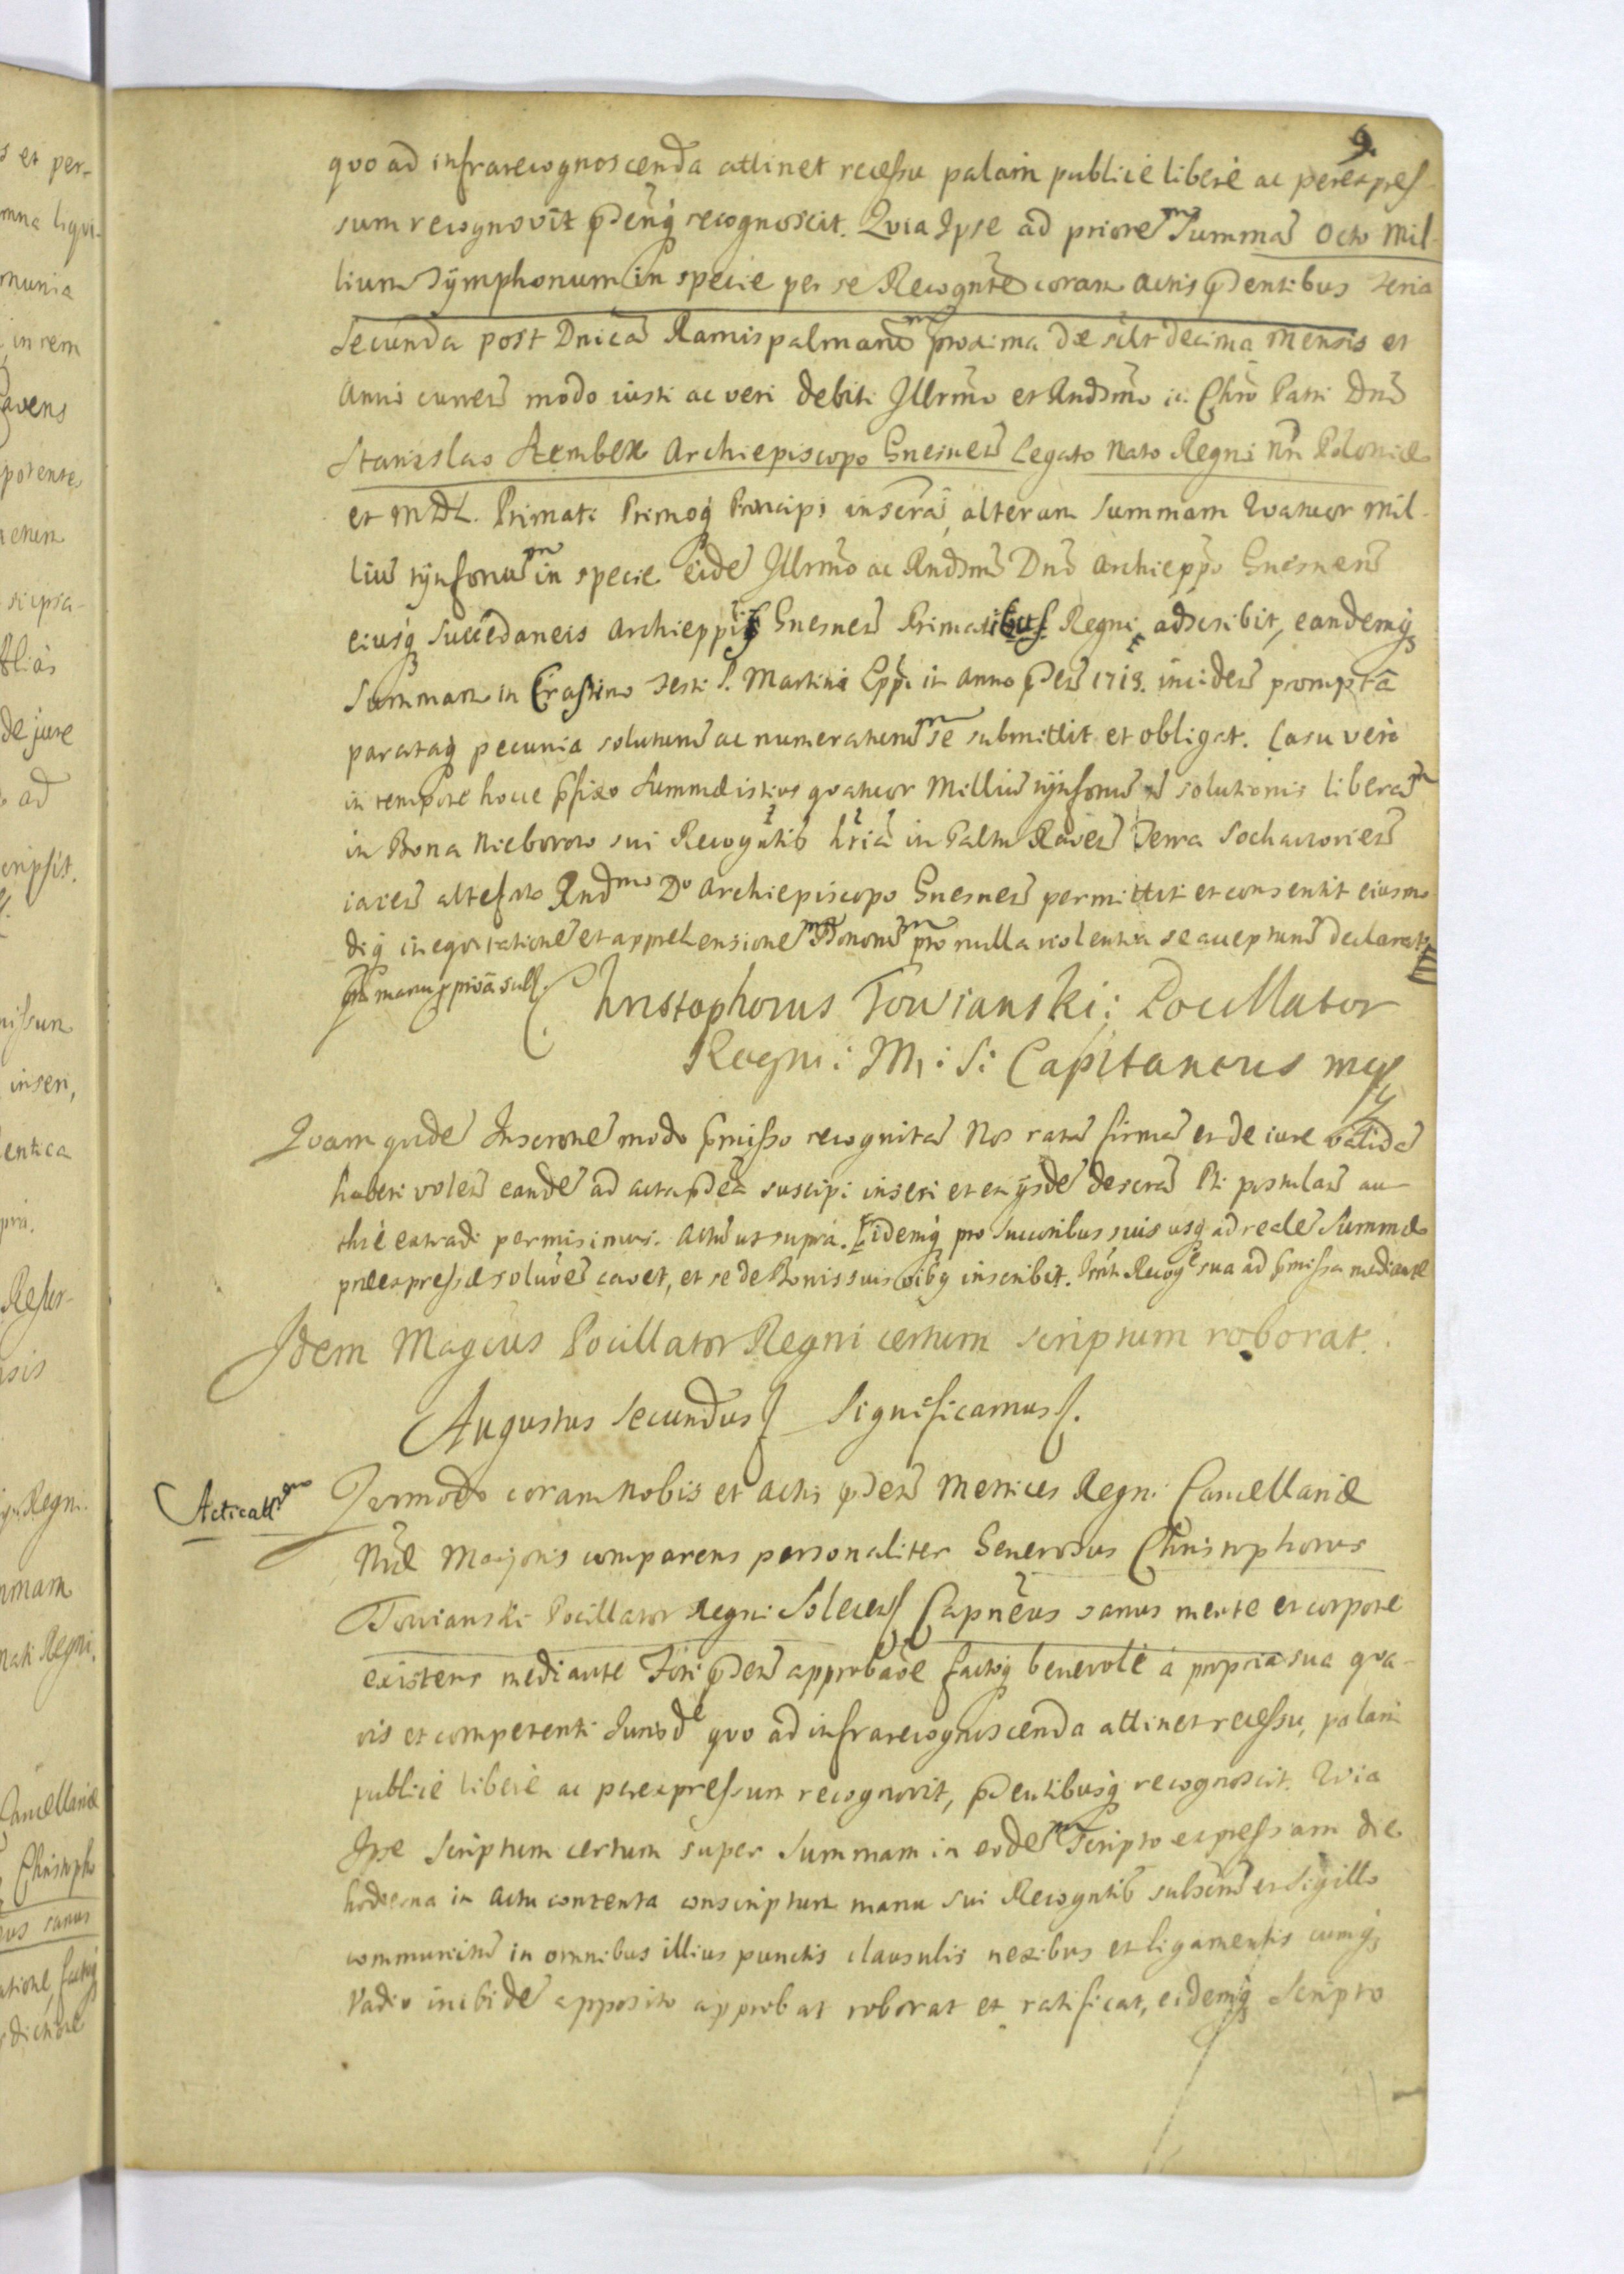 9.
quo ad infrarecognoscenda attinet recessu palam publicè liberè ac perexpres-
sum recognovit pntq recognoscit. Quia Ipse ad priorem Summam Octo Mil-
lium Tÿmphonum in specie per se Recogntem coram actis pntibus Feria
Secunda post Dnicam Ramispalmarum proxima die scilt decima Mensis et
Anni curren modo iusti ac veri debiti Illrmo et Rndsmo in Chro Patri Dno
Stanislao Szembek Archiepiscopo Gnesnen Legato Nato Regni Nri Poloniæ
et MDL. Primati Primoq Principi inscram, alteram Summam Quatuor Mil-
lium tÿnfonum in specie eidem Illrmo ac Rndsmo Dno Archieppo Gnesnen
eiusq succedaneis Archieppis Gnesnen Primatibus Regni adscribit, eandemq
Summam in Crastino Festi S. Martini Eppi in Anno pnt 1718. inciden promptâ
parataq pecunia soluturum ac numeraturum se submittit et obligat. Casu verò
in tempore hocce pfixo Summæ istius quatuor Millium tÿnfonum n solutionis liberam
in Bona Nieborow sui Recogntis hria in Paltu Raven Terra Sochaczovien
iacen altefato Rndmo Do Archiepiscopo Gnesnen permittit et consentit eiusmo
diq inequitationem et apprehensionem Bonorum pro nulla violentia se accepturum declarat
pns manu ppriâ subs
Christophorus Towianski: Pocillator
Regni: M: S: Capitaneus mp
Quam quidem Inscronem modo pmisso recognitam Nos ratam firmam et de iure validam
haberi volen eandem ad acta pntia suscipi inseri et ex ijsdem descram Pti postulan au-
thcè extradi permisimus. Actum ut supra. Eidemq pro Succoribus suis usq ad realem Summæ
præexpressæ solunem cavet, et se de Bonis suis oibq inscribit. Pnti Recogne sua ad pmissa mediante
Idem Magcus Pocillator Regni certum scriptum roborat.
Augustus Secundus Significamus.
Acticatur
Jermodo coram Nobis et actis pnt Metrices Regni Cancellariæ
Nræ Majoris comparens personaliter Generosus Christophorus
Towianski Pocillator Regni Solecen Capneus sanus mente et corpore
existens mediante Fori pnt approbaoe factoq benevolè â propria sua qva-
vis et competenti Jurisde quo ad infrarecognoscenda attinet recessu, palam
publicè liberè ac perexpressum recognovit, pntibusq recognoscit. Quia
Ipse Scriptum certum super Summam in eodem Scripto expressam die
hodierna in Actu contenta conscriptum manu sui Recogntis subscrum et Sigillo
communitum in omnibus illius punctis clausulis nexibus et ligamentis cumq
Vadio inibidem apposito approbat roborat et ratificat, eidemq Scripto